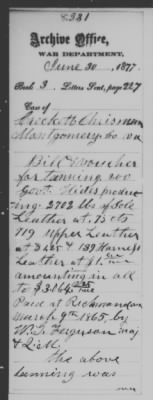 8321
Archive Office,
WAR DEPARTMENT,
June 30, 1877.
Book 3, Letters Sent, page 227
Case of
Crockett & Chrisman
Montgomery Co Va
Bill & voucher
for tanning 200
Govt Hides produc
ing. 2703 lbs of Sole
Leather at. 15 cts
719 upper Leather
at & 189 Harness
Leather at $1.
amounting in all
to $3.
Paid at Richmond on
March 9th 1865, by
W. G. Ferguson Maj
& Q.M.
The above
tanning was
over